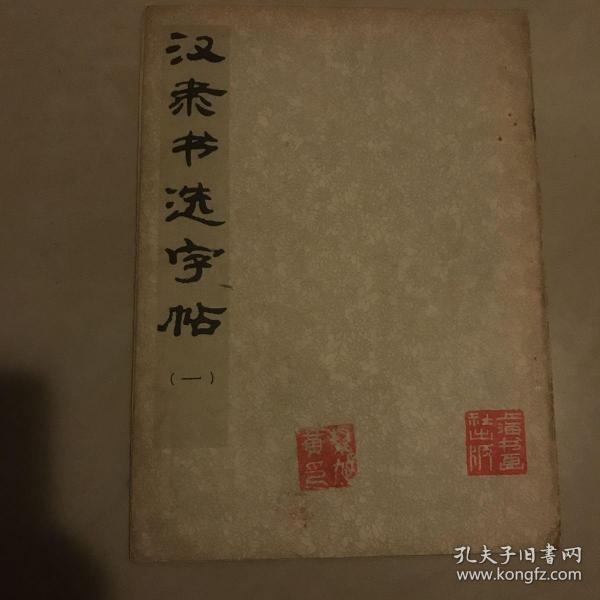 汉隶书选字帖
(一)
上海书画
社出版
孔夫子旧书网
www.kongfz.com